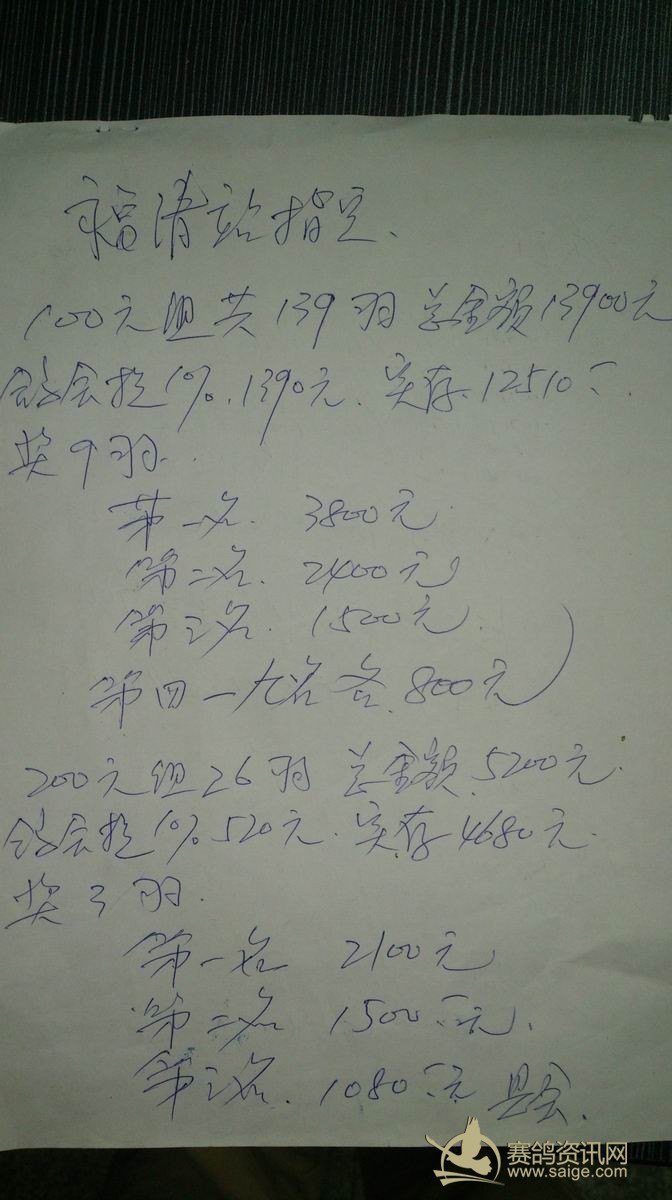 福清站指定、
100元组共139羽 总金额13900元
鸽会提10%.1390元.实存.12510元.
奖9羽.
第一名. 3800元.
第二名. 2400元
第三名. 1500元.
第四一九名各.800元
200元组26羽 总金额.5200元.
鸽会提10%520元.实存4680元.
奖3羽.
第一名 2100元
第二名 1500.元.
第三名.1080.元 县会.
赛鸽资讯网
www.saige.com